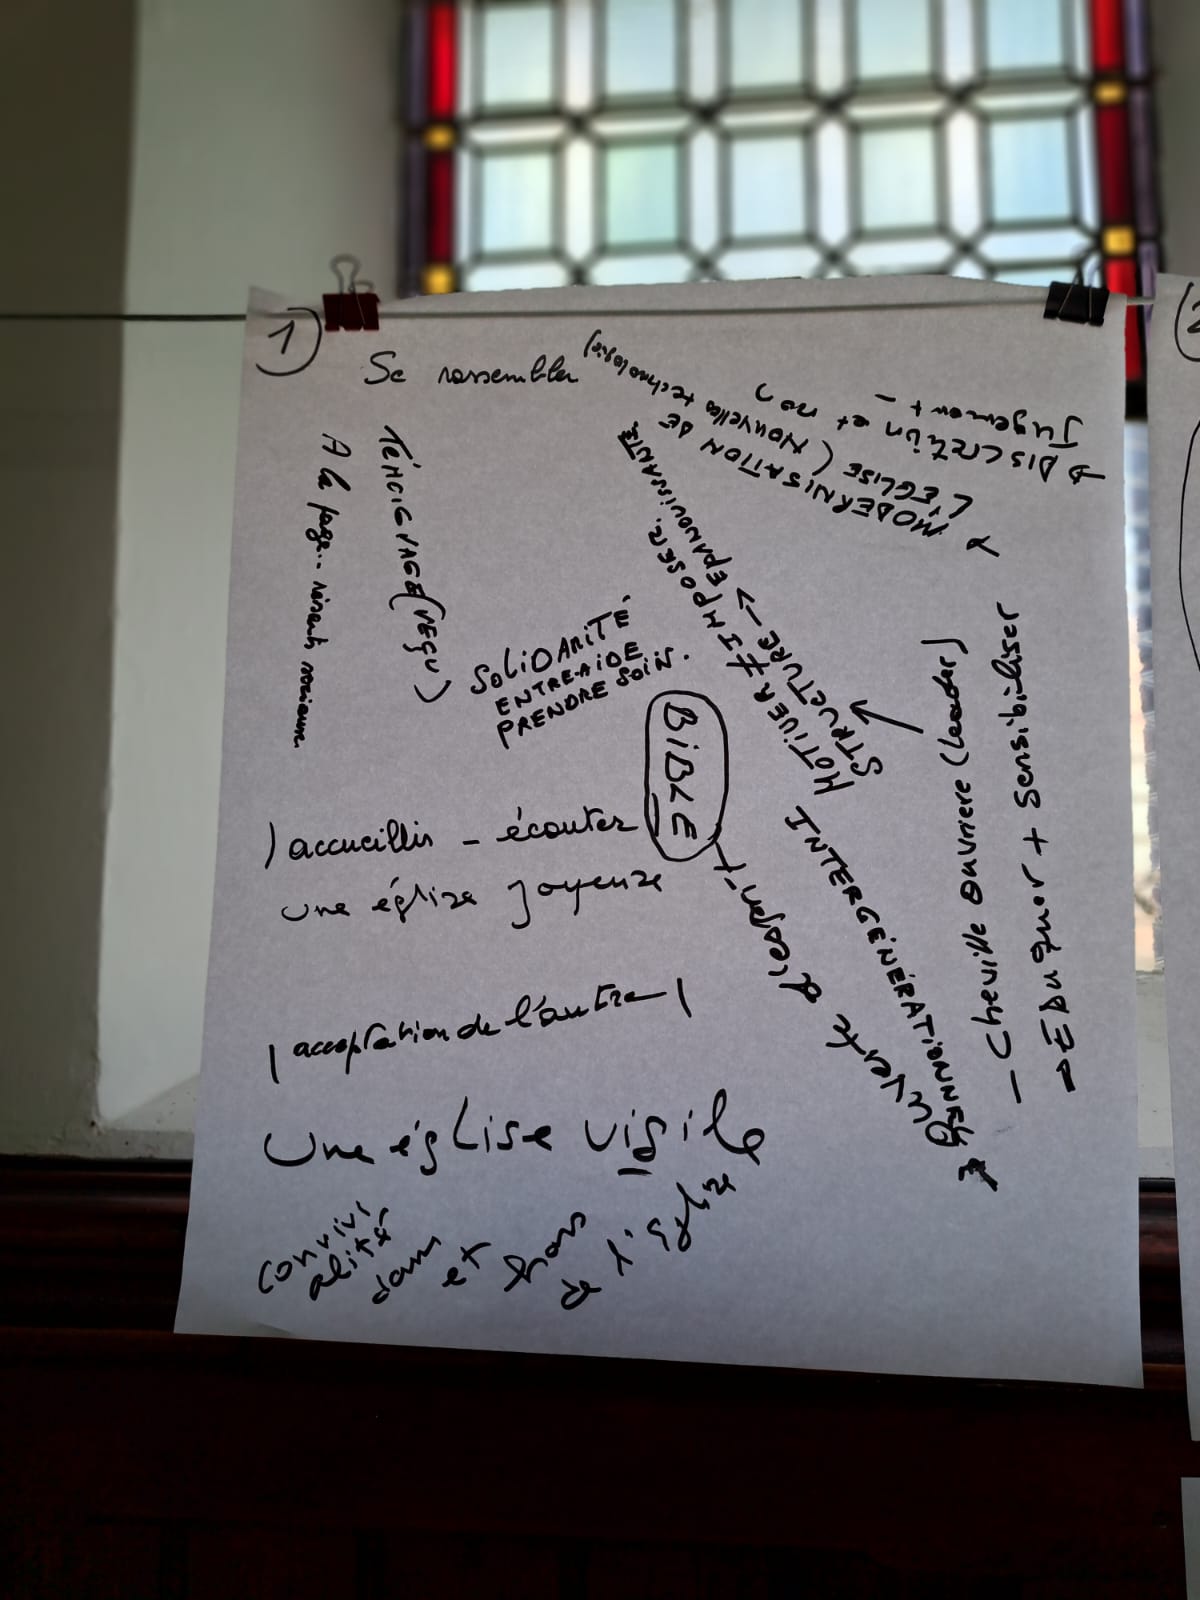 1
Se rassembler
→ DISCRETION et non
Jugement + -
→ MODERNISATION DE
L'ÉGLISE (Nouvelles technologies)
TÉMOIGNAGE (VEÇU)
A la page..
SOLIDARITÉ
ENTRE-AIDE
PRENDRE SOIN.
MOTIVER ≠ IMPOSER.
STRUCTURE → EPANOUISSANTE
BIBLE
+ - disant
Ouverte
INTERGÉNÉRATIONNEL
- Cheville ouvriere (leader)
⇒ EDuquer + Sensibiliser
accueillir - écouter
une église joyeuse
acceptation de l'autre
Une église vigile
convivi
alité
dans
et hors
de l'église
2